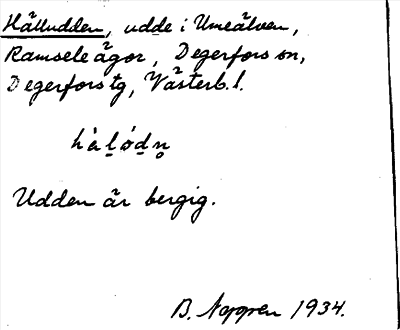 Hälludden, udde i Umeälven,
Ramsele ägor, Degerfors sn,
Degerfors tg, Västerb. l.
Udden är bergig.
B. Noppen 1934.